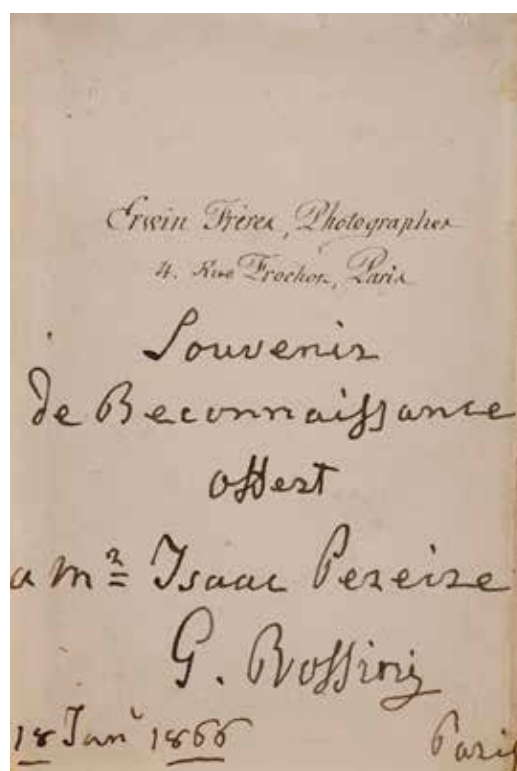 Erwin Frères, Photographes
4. Rue Frochot, Paris
Souvenir
de Reconnaissance
offert
a Mr Isaac Pereire
G. Rossini
18 Janr 1866 Paris